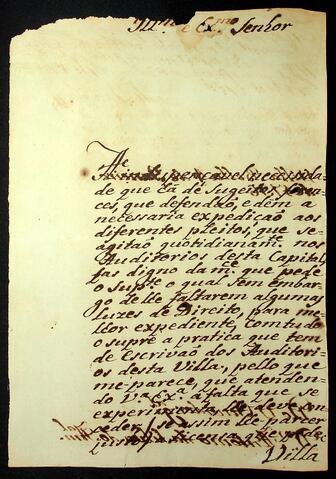 Illmo. e Exmo. Senhor
He
A indispensavel necessida-
de que ha de Sugeitos capa-
ces, que defendão, e dem a
necesaria expedição aos
diferentes pleitos, que se
agitão quotidianamte. nos
Auditorios desta Capital,
fas digno da mce. que pede
o Supte. o qual sem embar-
go de lhe faltarem algumas
luzes de Direito, para me-
lhor expediente, comtudo
o supre a pratica que tem
de Escrivão dos Auditori-
os desta Villa, pello que
me parece, que atenden-
do V.a Ex.a a falta que se
experimenta, lhe deve con-
ceder, se assim lhe parecer
justo, a licença que pede
Villa